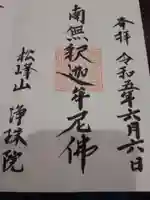 奉拝 令和五年六月六日
南無釈迦牟尼佛
松峰山 浄珠院